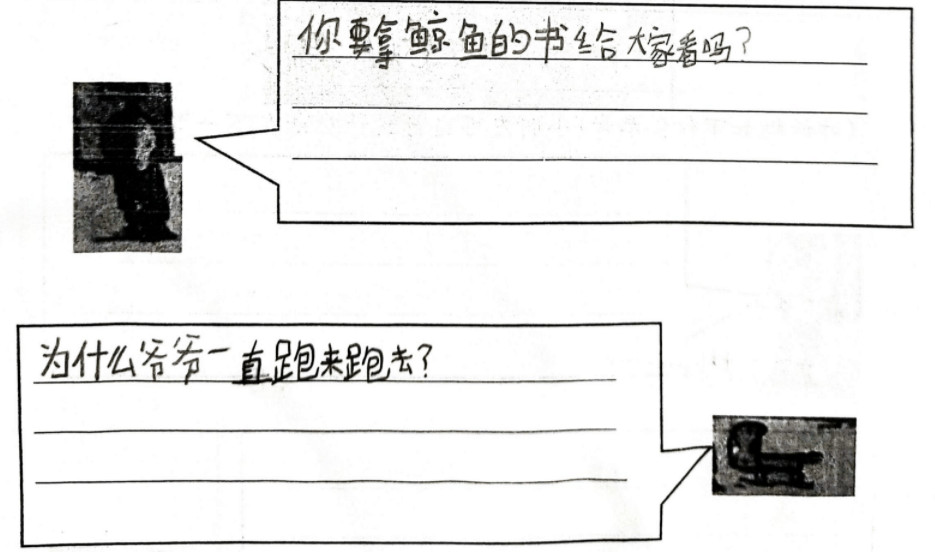 你要拿鲸鱼的书给大家看吗?
为什么爷爷一直跑来跑去?